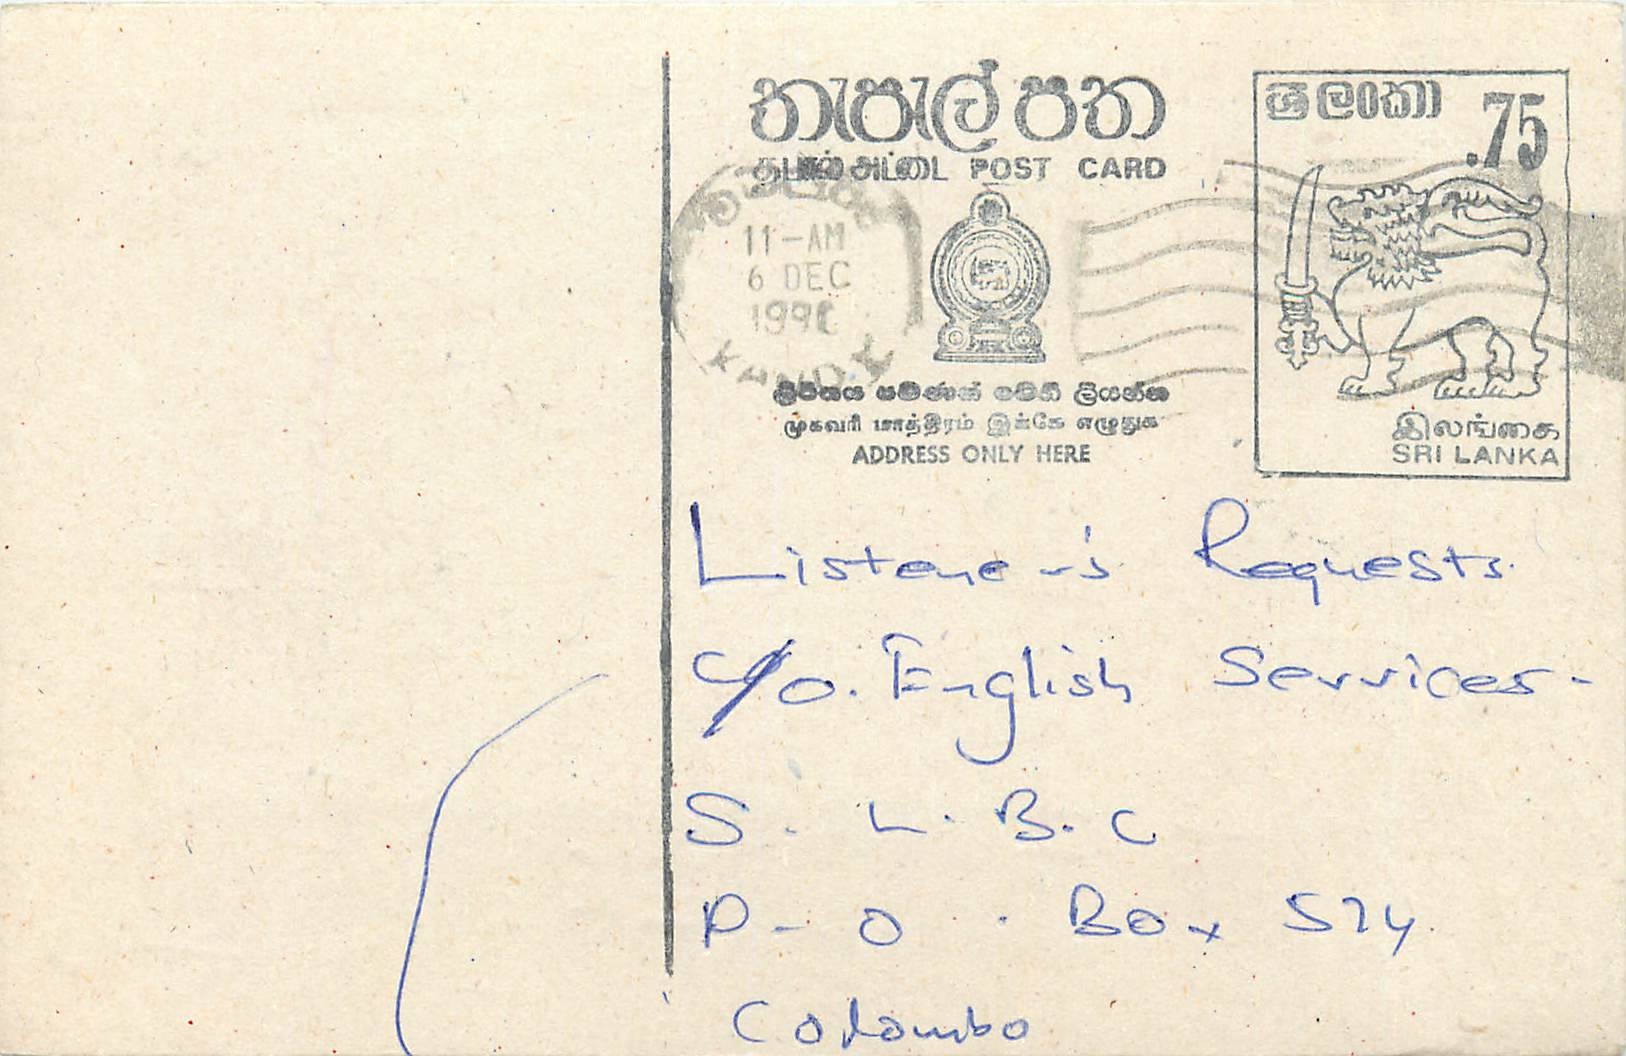 තැපැල් පත
தபால் அட்டை POST CARD
ශ්‍රී ලංකා .75
11-AM
6 DEC
KANDY
ලිපිනය පමණක් මෙහි ලියන්න
முகவரி மாத்திரம் இங்கே எழுதுக
ADDRESS ONLY HERE
இலங்கை
SRI LANKA
Listener's Requests.
C/o. English Services-
S. L. B. C
P-O. Box 574.
Colombo